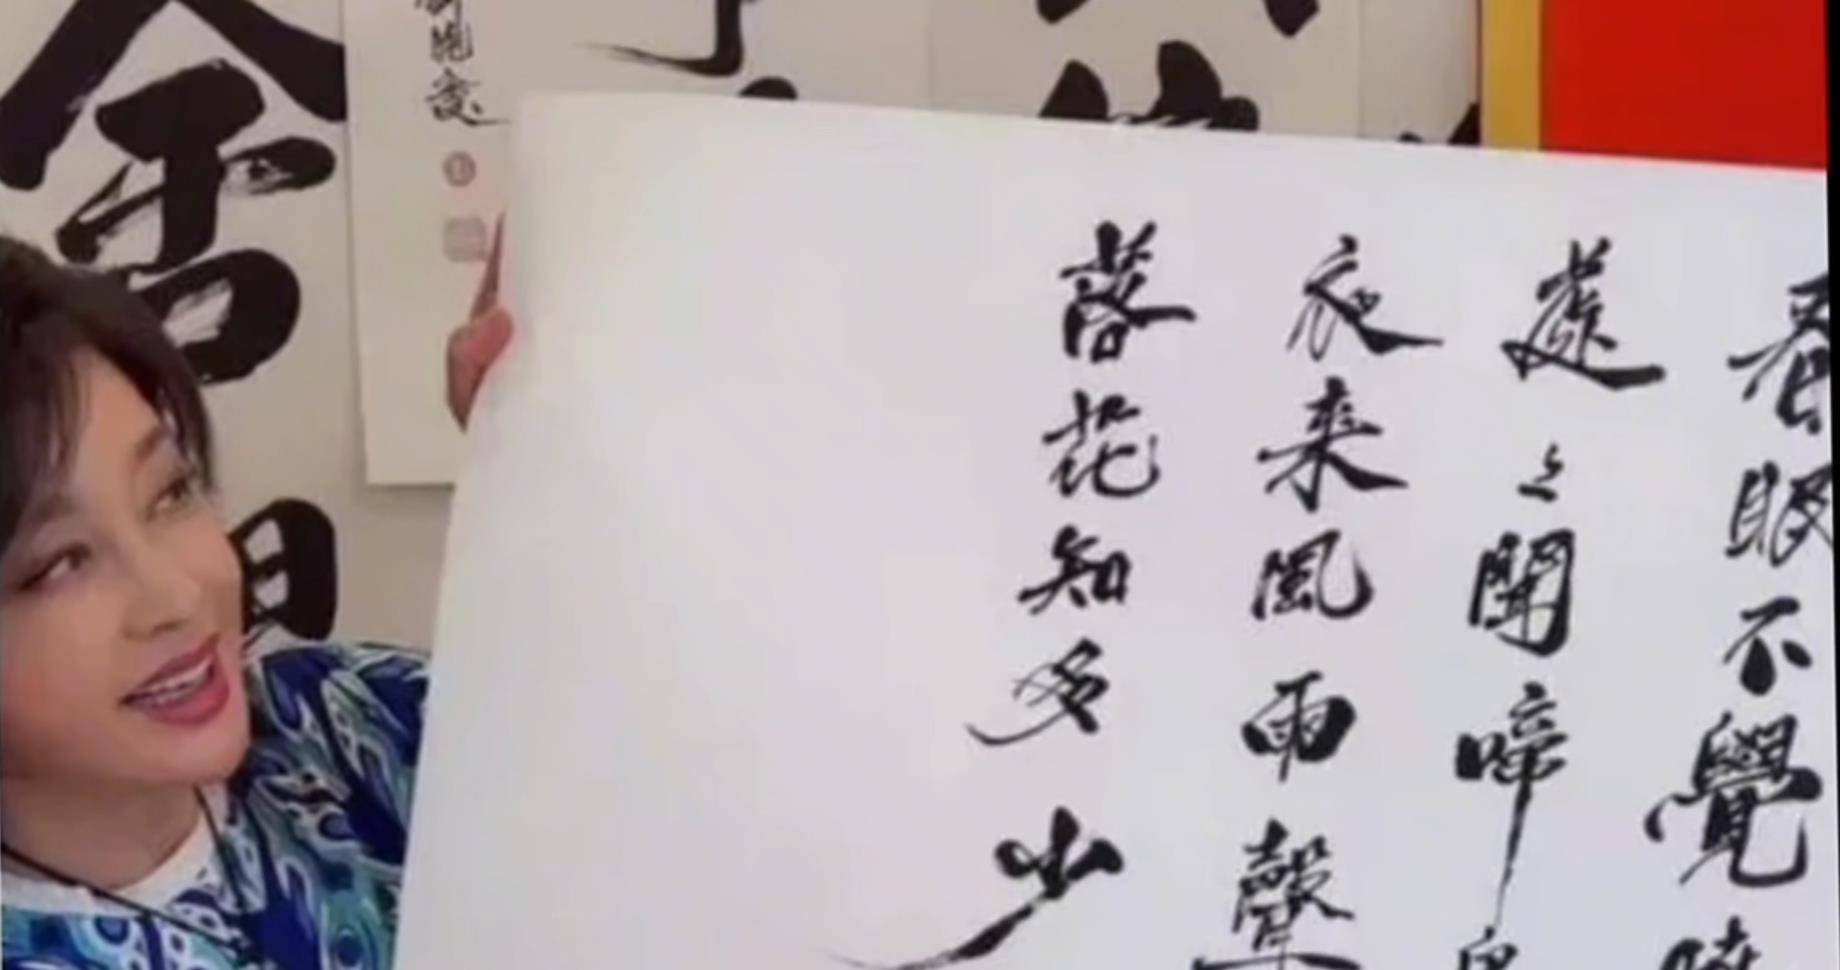 春眠不覺曉
處々聞啼鳥
夜来風雨聲
落花知多少
舍